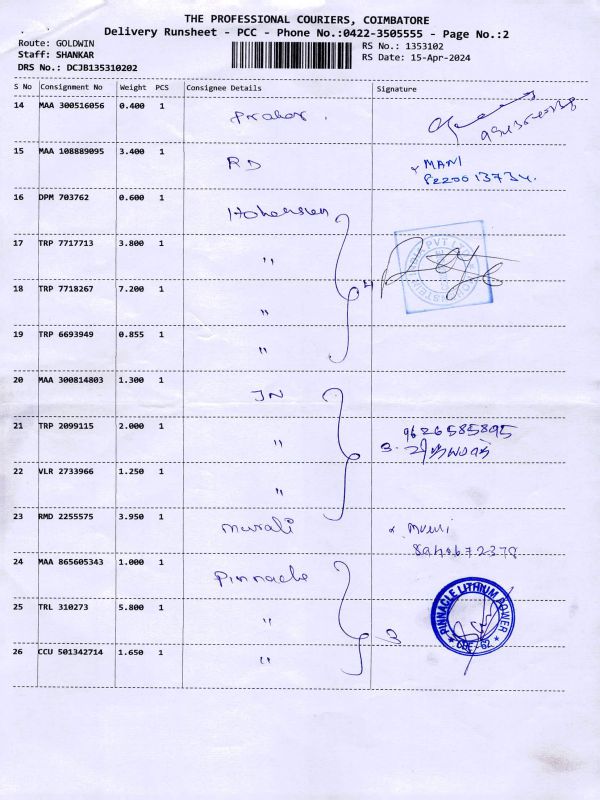 THE PROFESSIONAL COURIERS, COIMBATORE
Delivery Runsheet - PCC - Phone No.:0422-3505555 - Page No.:2
Route: GOLDWIN
Staff: SHANKAR
DRS No.: DCJB135310202
RS No.: 1353102
RS Date: 15-Apr-2024
S No Consignment No Weight PCS Consignee Details Signature
14 MAA 300516056 0.400 1
15 MAA 108889095 3.400 1 RD MANI
16 DPM 703762 0.600 1
17 TRP 7717713 3.800 1 "
18 TRP 7718267 7.200 1 " 4
19 TRP 6693949 0.855 1 "
20 MAA 300814803 1.300 1 JN
21 TRP 2099115 2.000 1 " 9626585895
3
22 VLR 2733966 1.250 1 "
23 RMD 2255575 3.950 1 murali
24 MAA 865605343 1.000 1 Pinnacle
25 TRL 310273 5.800 1 " PINNACLE LITHIUM POWER
CBE-62
26 CCU 501342714 1.650 1 " 3